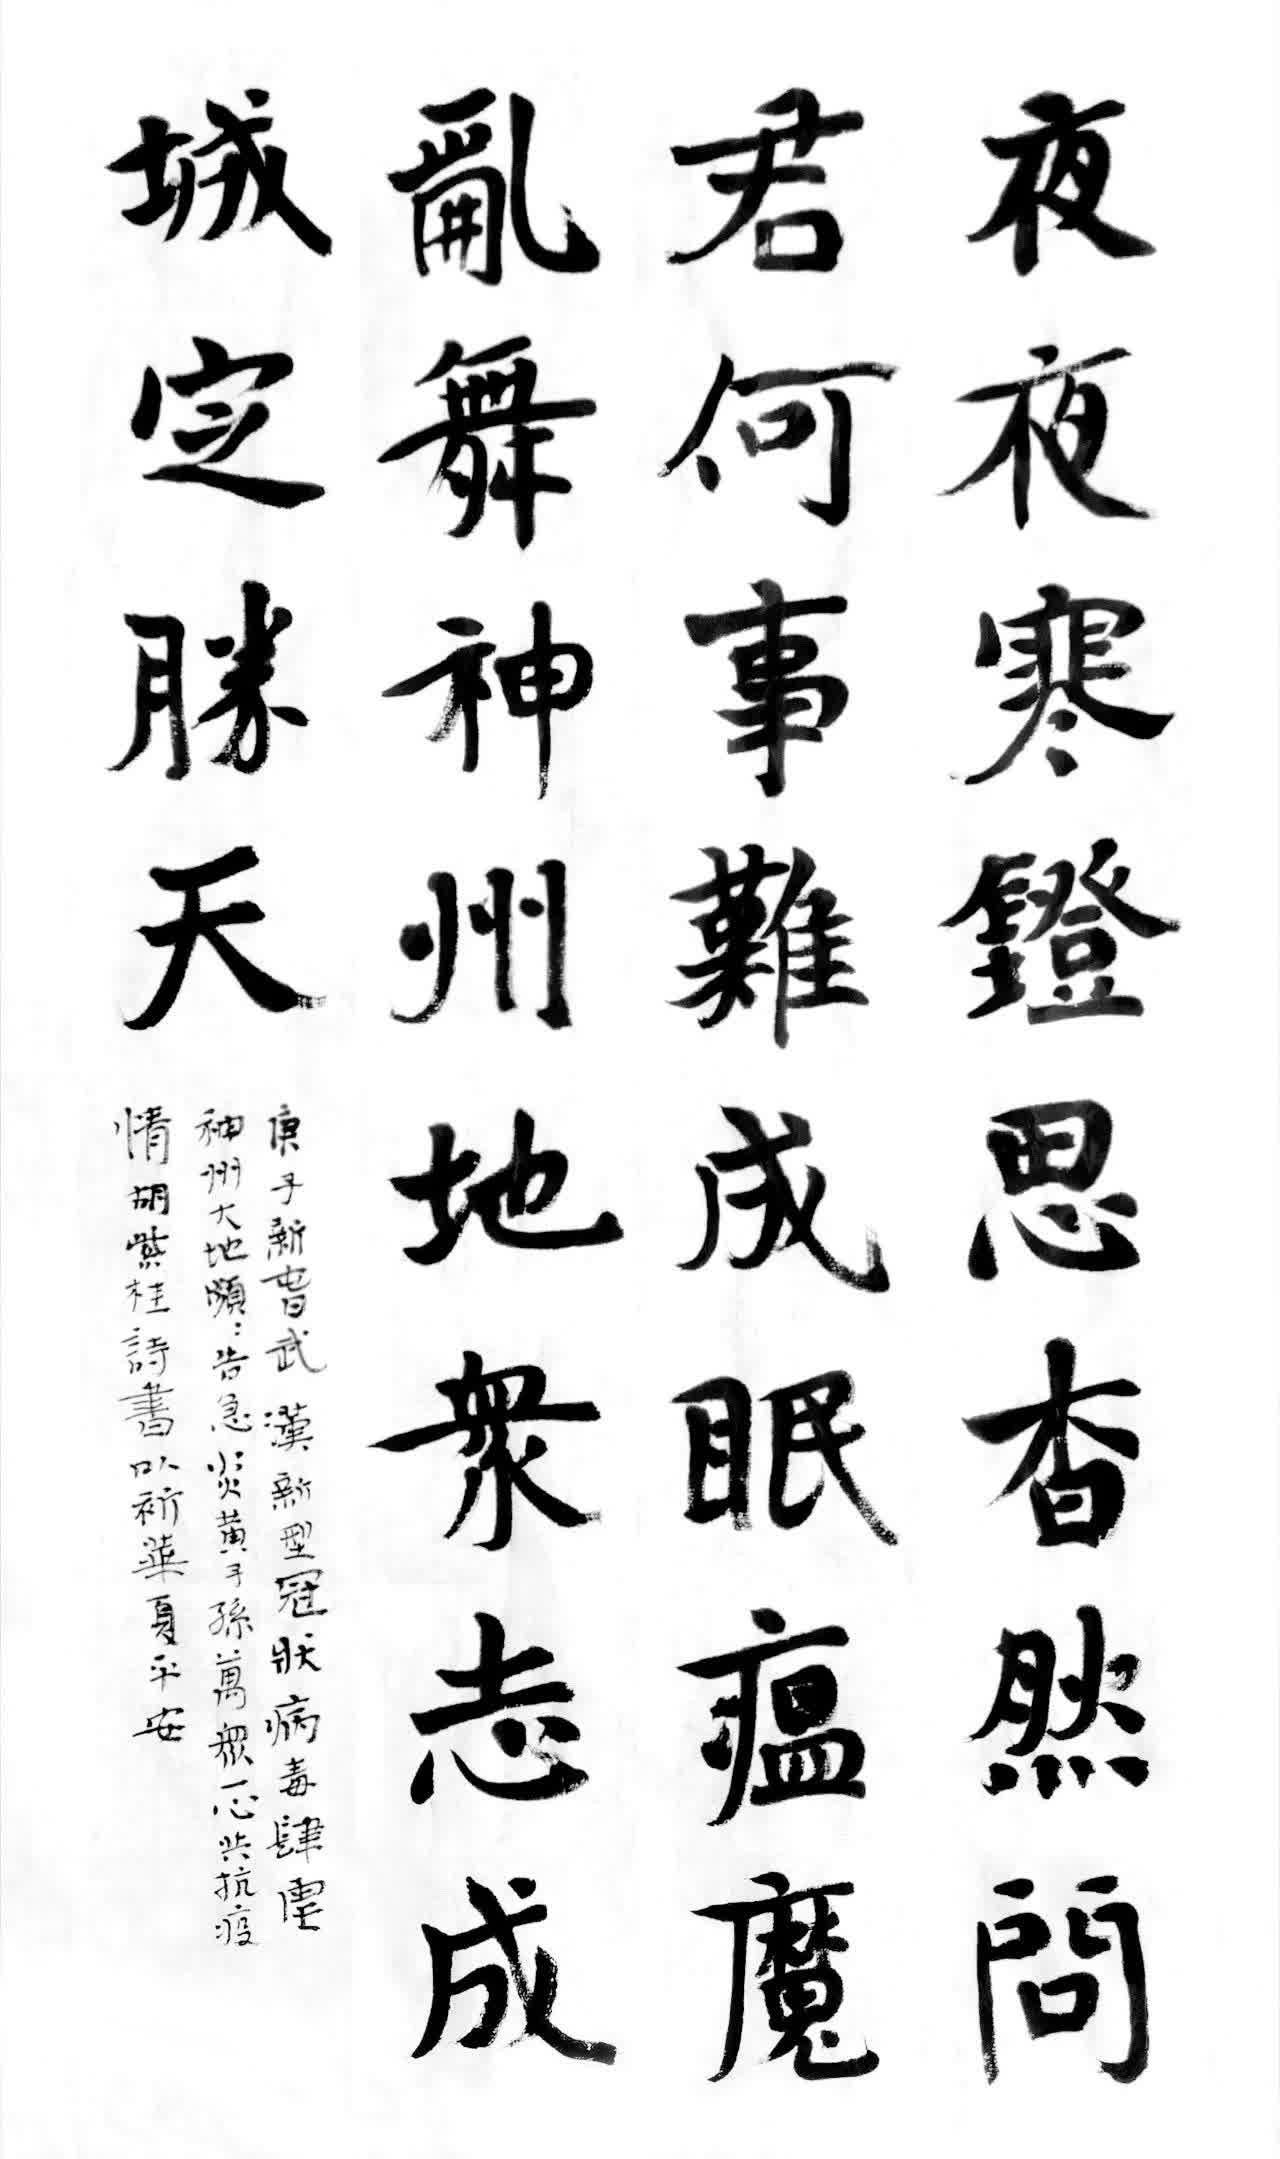 夜夜寒鐙思杳然問
君何事難成眠瘟魔
亂舞神州地衆志成
城定勝天
庚子新旾武漢新型冠狀病毒肆虐
神州大地頻〻告急炎黄子孫萬眾一心共抗疫
情胡紫桂詩書以祈華夏平安